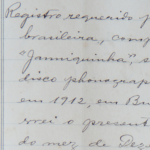 Registro requerido p
brasileira, comp
"Janniquinha", s
disco phonograp
em 1912, em Bu
rei o present
do mez de Deze